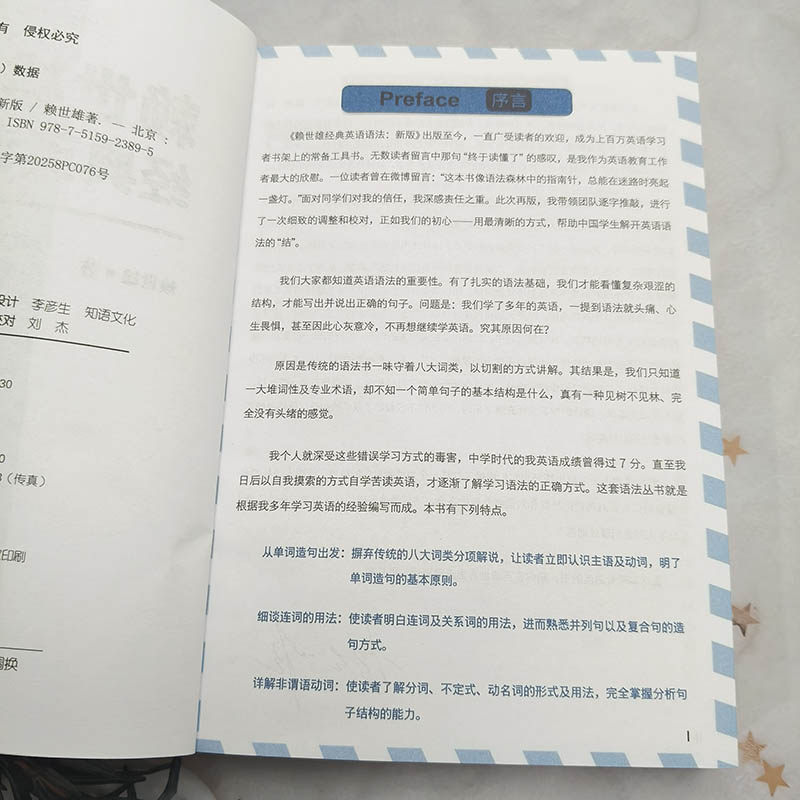 有 侵权必究
）数据
新版 / 赖世雄著. — 北京：
ISBN 978-7-5159-2389-5
字第20258PC076号
设计 李彦生 知语文化
校对 刘 杰
30
0
8（传真）
印刷
调换
Preface 序言
《赖世雄经典英语语法：新版》出版至今，一直广受读者的欢迎，成为上百万英语学习
者书架上的常备工具书。无数读者留言中那句“终于读懂了”的感叹，是我作为英语教育工作
者最大的欣慰。一位读者曾在微博留言：“这本书像语法森林中的指南针，总能在迷路时亮起
一盏灯。”面对同学们对我的信任，我深感责任之重。此次再版，我带领团队逐字推敲，进行
了一次细致的调整和校对，正如我们的初心——用最清晰的方式，帮助中国学生解开英语语
法的“结”。
我们大家都知道英语语法的重要性。有了扎实的语法基础，我们才能看懂复杂艰涩的
结构，才能写出并说出正确的句子。问题是：我们学了多年的英语，一提到语法就头痛、心
生畏惧，甚至因此心灰意冷，不再想继续学英语。究其原因何在？
原因是传统的语法书一味守着八大词类，以切割的方式讲解。其结果是，我们只知道
一大堆词性及专业术语，却不知一个简单句子的基本结构是什么，真有一种见树不见林、完
全没有头绪的感觉。
我个人就深受这些错误学习方式的毒害，中学时代的我英语成绩曾得过 7 分。直至我
日后以自我摸索的方式自学苦读英语，才逐渐了解学习语法的正确方式。这套语法丛书就是
根据我多年学习英语的经验编写而成。本书有下列特点。
从单词造句出发：摒弃传统的八大词类分项解说，让读者立即认识主语及动词，明了
单词造句的基本原则。
细谈连词的用法：使读者明白连词及关系词的用法，进而熟悉并列句以及复合句的造
句方式。
详解非谓语动词：使读者了解分词、不定式、动名词的形式及用法，完全掌握分析句
子结构的能力。
I